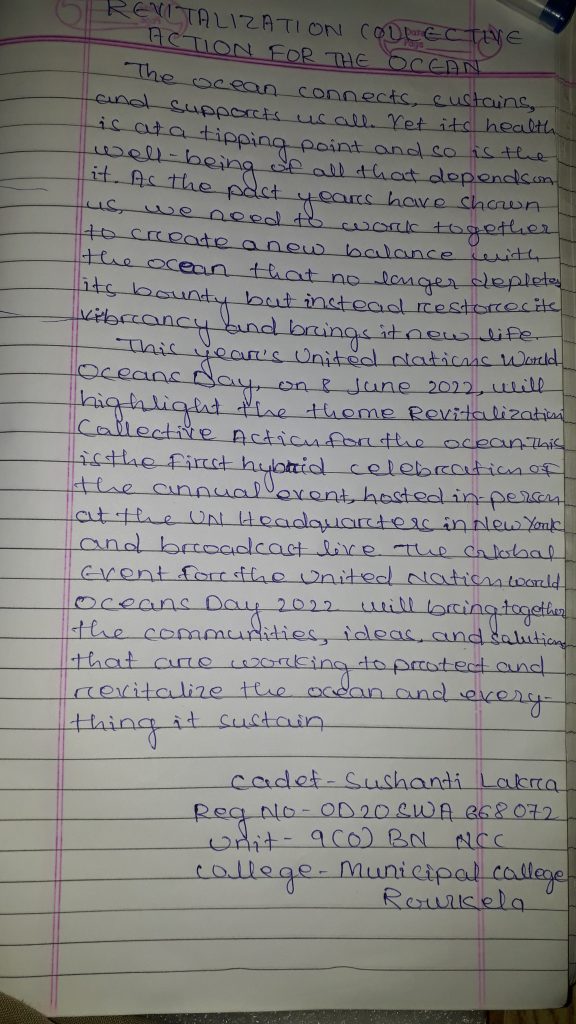 REVITALIZATION COLLECTIVE
ACTION FOR THE OCEAN
The ocean connects, sustains,
and supports us all. Yet its health
is at a tipping point and so is the
well-being of all that depends on
it. As the past years have shown
us, we need to work together
to create a new balance with
the ocean that no longer depletes
its bounty but instead restores its
vibrancy and brings it new life.
This year's United Nations World
Oceans Day, on 8 June 2022, will
highlight the theme Revitalization
Collective Action for the ocean. This
is the First hybrid celebration of
the annual event, hosted in-person
at the UN Headquarters in New York
and broadcast live The Global
Event for the United Nation world
Oceans Day 2022 will bring together
the communities, ideas, and solutions
that are working to protect and
revitalize the ocean and every-
thing it sustain
Cadet - Sushanti Lakra
Reg No - OD20SWA 868072
Unit - 9(O) BN NCC
College - Municipal college
Rourkela